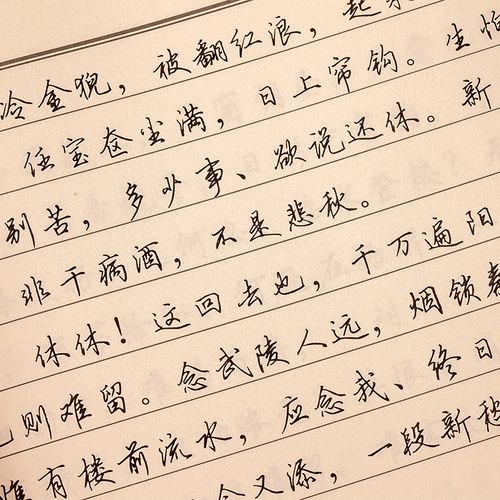 冷金猊，被翻红浪，起
任宝奁尘满，日上帘钩。生怕
别苦，多少事、欲说还休。新
非干病酒，不是悲秋。
休休！这回去也，千万遍阳
则难留。念武陵人远，烟锁
有楼前流水，应念我、终日
今又添，一段新愁